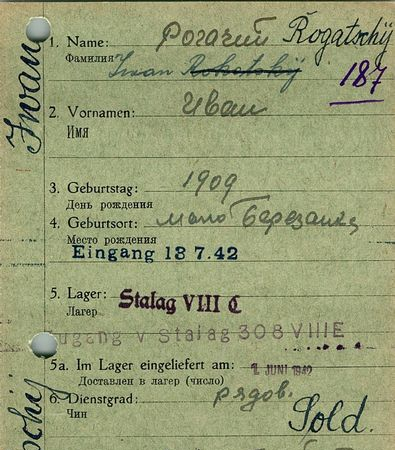 1. Name: Рогачий Rogatschij
Фамилия Iwan Rokotskij
187
Iwan
2. Vornamen: Иван
Имя
3. Geburtstag: 1909
День рождения
4. Geburtsort: мало Березанка
Место рождения
Eingang 18 7.42
5. Lager: Stalag VIII C
Лагер
Zugang v Stalag 308 VIII E
5a. Im Lager eingeliefert am: 1. JUNI 1942
Доставлен в лагер (число)
6. Dienstgrad: рядов.
Чин
Sold.